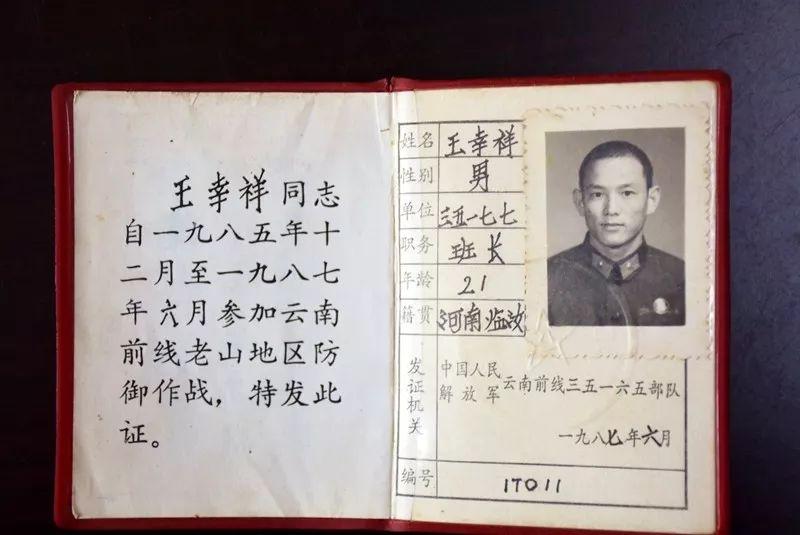 王幸祥同志
自一九八五年十
二月至一九八七
年六月参加云南
前线老山地区防
御作战，特发此
证。
姓名 王幸祥
性别 男
单位 三五一七七
职务 班长
年龄 21
籍贯 河南临汝
发证机关 中国人民解放军云南前线三五一六五部队
一九八七年六月
编号 17011